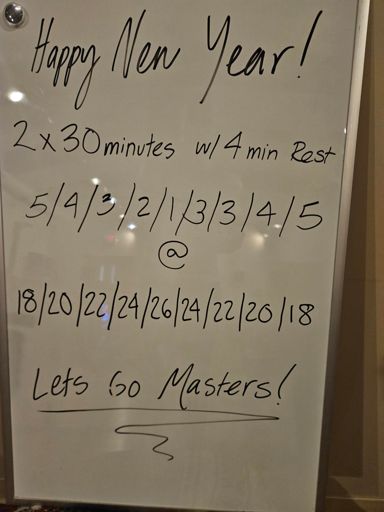 Happy New Year!
2x30minutes w/ 4 min Rest
5/4/3/2/1/3/3/4/5
@
18/20/22/24/26/24/22/20/18
Lets Go Masters!